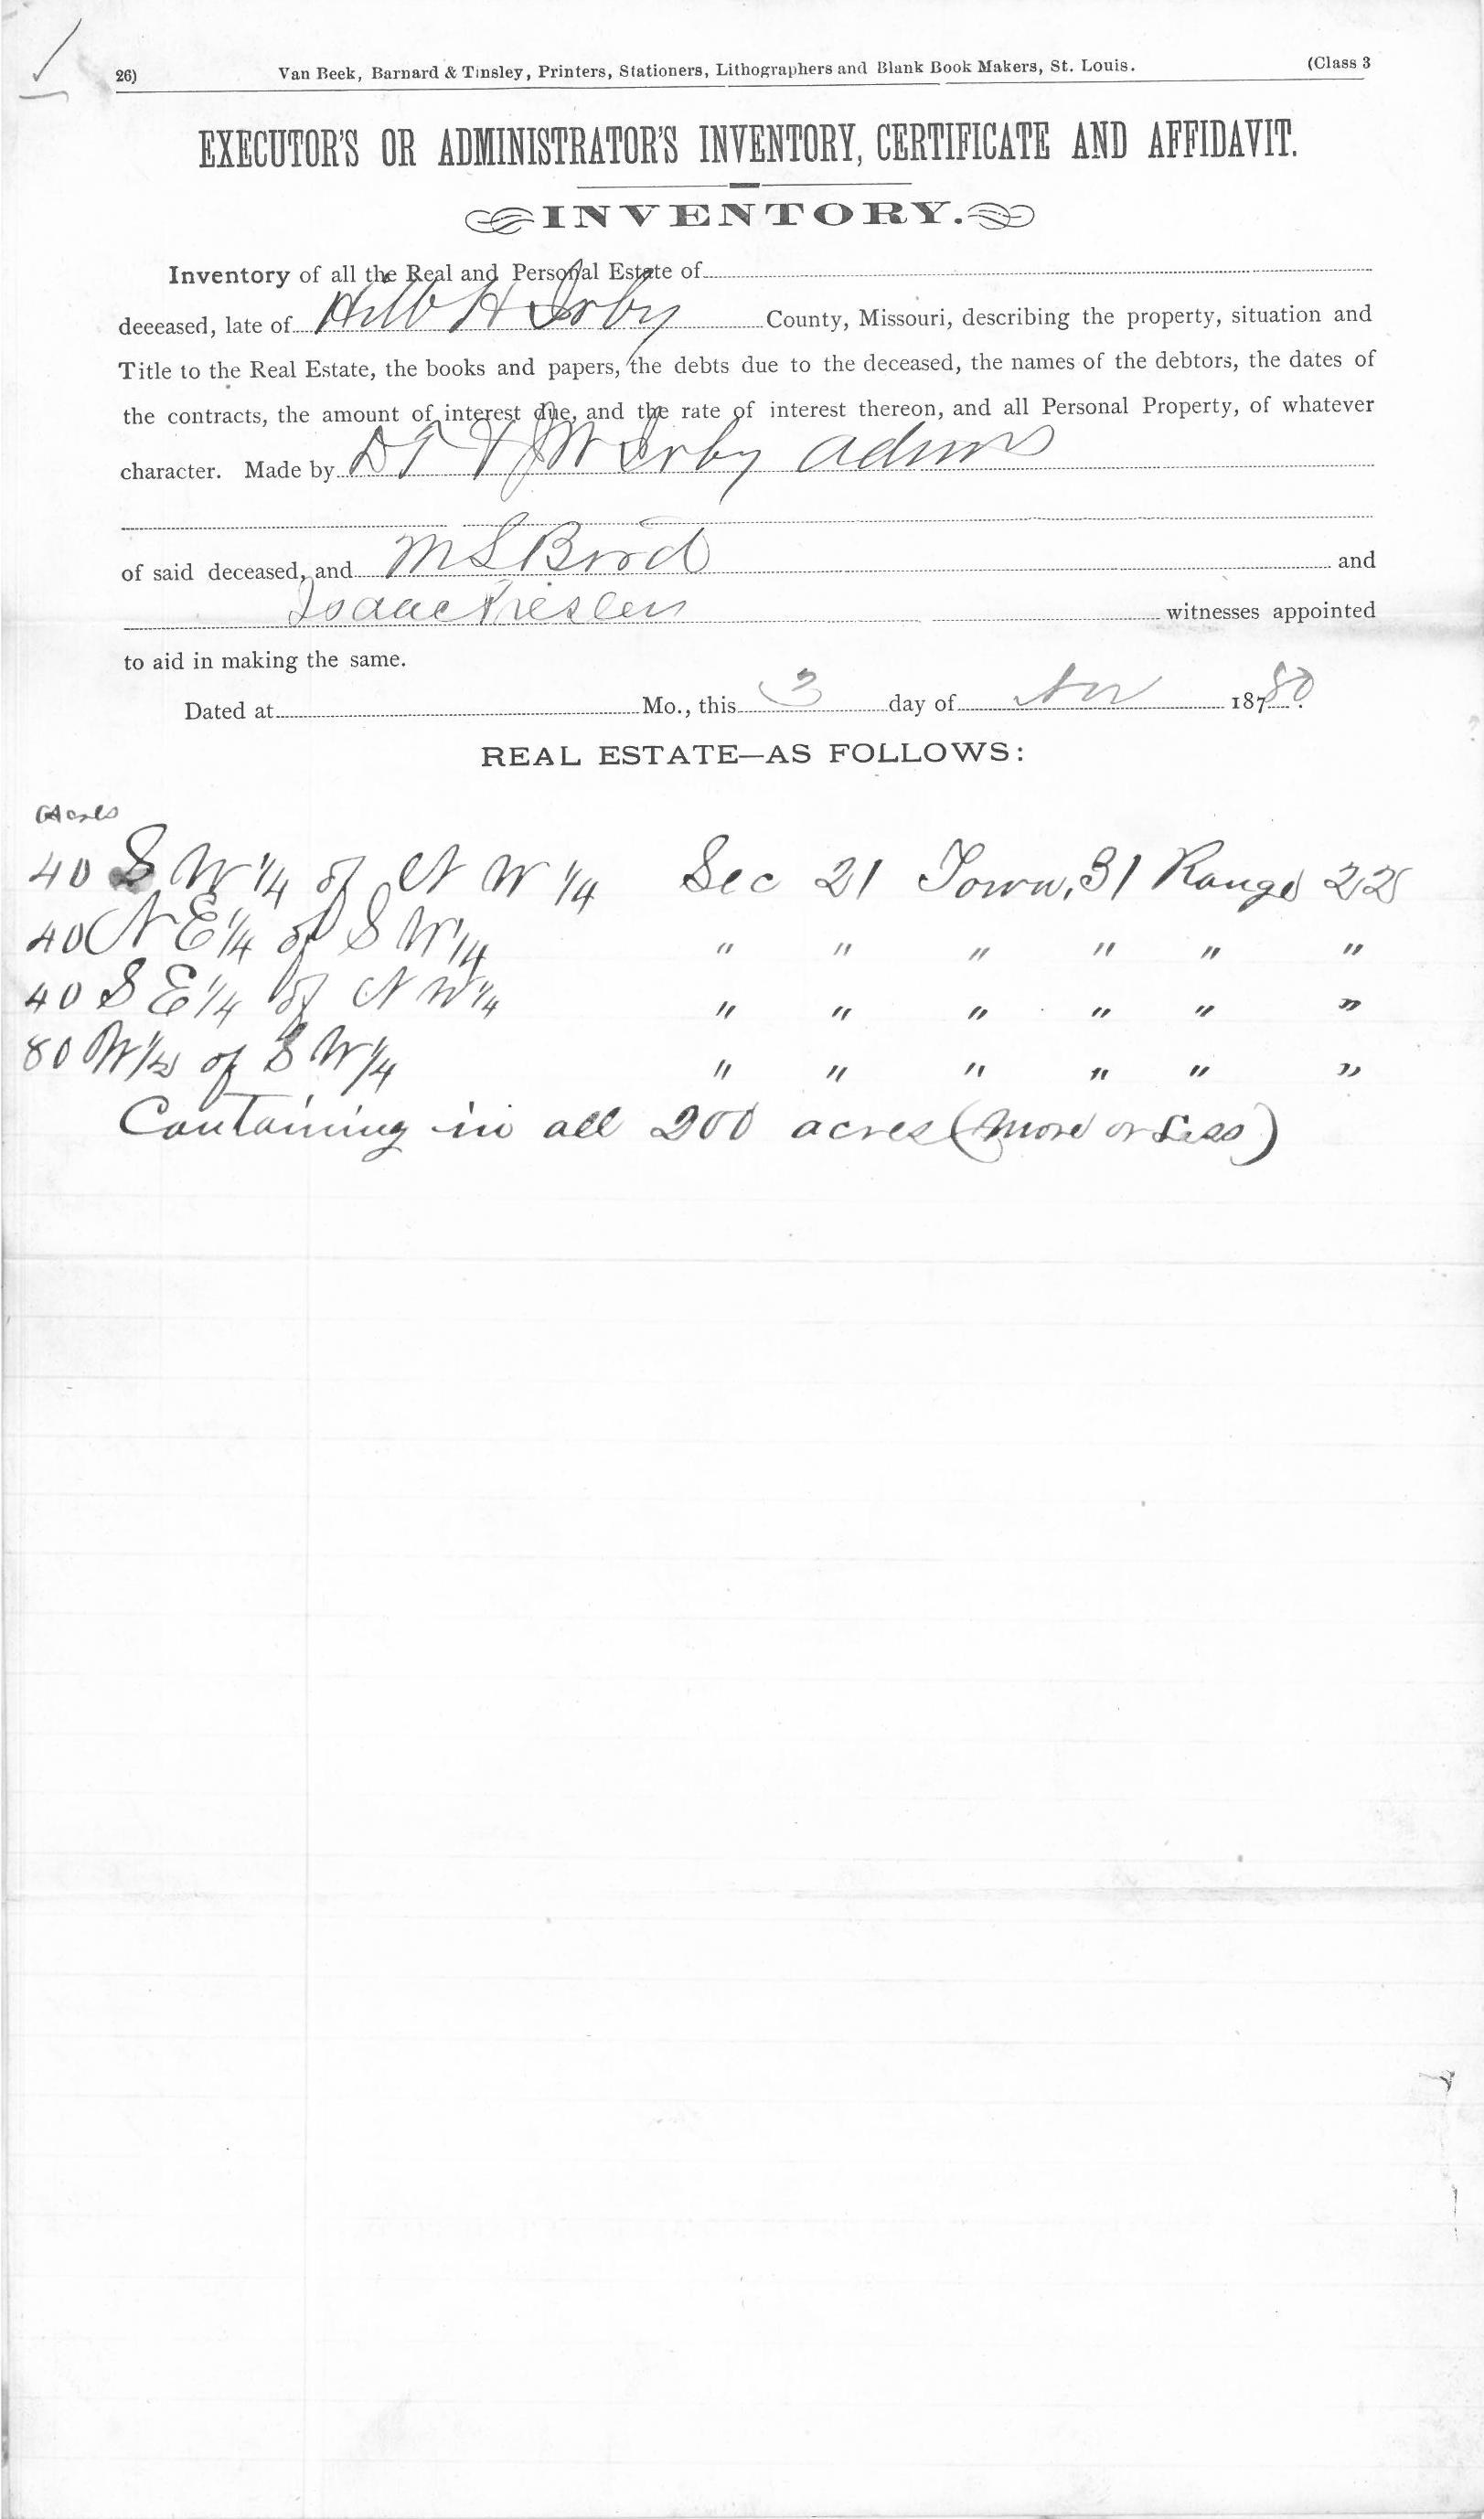 26) Van Beek, Barnard & Tinsley, Printers, Stationers, Lithographers and Blank Book Makers, St. Louis. (Class 3
EXECUTOR'S OR ADMINISTRATOR'S INVENTORY, CERTIFICATE AND AFFIDAVIT.
INVENTORY.
Inventory of all the Real and Personal Estate of
deceased, late of H Irby County, Missouri, describing the property, situation and
Title to the Real Estate, the books and papers, the debts due to the deceased, the names of the debtors, the dates of
the contracts, the amount of interest due, and the rate of interest thereon, and all Personal Property, of whatever
character. Made by D T & J W Irby adms
of said deceased, and M S and
Isaac witnesses appointed
to aid in making the same.
Dated at Mo., this 3 day of Nov 187 80.
REAL ESTATE—AS FOLLOWS:
Acres
40 S W 1/4 of N W 1/4 Sec 21 Town, 31 Range 22
40 N E 1/4 of S W 1/4 " " " " " "
40 S E 1/4 of N W 1/4 " " " " " "
80 W 1/2 of S W 1/4 " " " " " "
Containing in all 200 acres (more or Less)